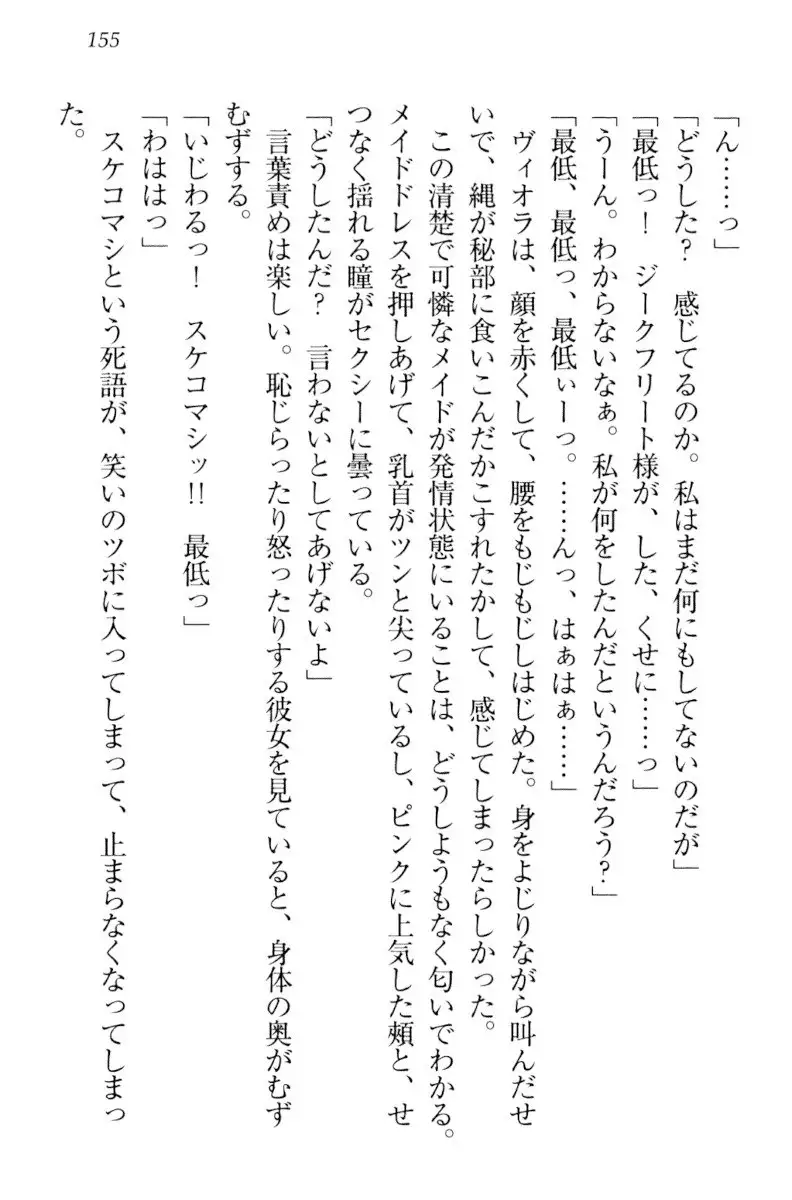 155
「ん……っ」
「どうした？　感じてるのか。私はまだ何にもしてないのだが」
「最低っ！　ジークフリート様が、した、くせに……っ」
「うーん。わからないなぁ。私が何をしたんだというんだろう？」
「最低、最低っ、最低ぃーっ。……んっ、はぁはぁ……」
　ヴィオラは、顔を赤くして、腰をもじもじしはじめた。身をよじりながら叫んだせ
いで、縄が秘部に食いこんだかこすれたかして、感じてしまったらしかった。
　この清楚で可憐なメイドが発情状態にいることは、どうしようもなく匂いでわかる。
メイドドレスを押しあげて、乳首がツンと尖っているし、ピンクに上気した頰と、せ
つなく揺れる瞳がセクシーに曇っている。
「どうしたんだ？　言わないとしてあげないよ」
　言葉責めは楽しい。恥じらったり怒ったりする彼女を見ていると、身体の奥がむず
むずする。
「いじわるっ！　スケコマシッ!!　最低っ」
「わははっ」
　スケコマシという死語が、笑いのツボに入ってしまって、止まらなくなってしまっ
た。